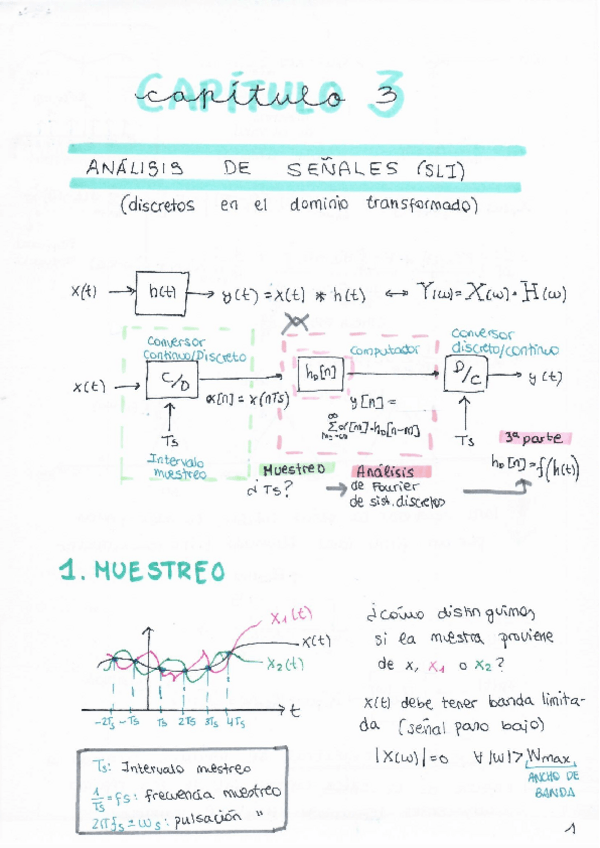 capítulo 3
ANÁLISIS DE SEÑALES (SLI)
(discretos en el dominio transformado)
x(t) → h(t) → y(t) = x(t) * h(t) ↔ Y(ω) = X(ω) · H(ω)
Conversor Continuo/Discreto
Computador
Conversor discreto/continuo
x(t) → C/D → x[n] = x(nTs) → h_D[n] → D/C → y(t)
y[n] =
∞ Σ m=-∞ x[m]·h_D[n-m]
Ts
Ts
Intervalo muestreo
3ª parte
h_D[n] = f(h(t))
Muestreo
¿Ts?
→ Análisis
de Fourier
de sist. discretos
1. MUESTREO
x₁(t)
x(t)
x₂(t)
-2Ts -Ts Ts 2Ts 3Ts 4Ts t
¿cómo distinguimos
si la muestra proviene
de x, x₁ o x₂?
x(t) debe tener banda limita-
da (señal paso bajo)
|X(ω)|=0 ∀ |ω|> Wmax
ANCHO DE
BANDA
Ts: Intervalo muestreo
1/Ts = fs: frecuencia muestreo
2πfs = ωs: pulsación "
1